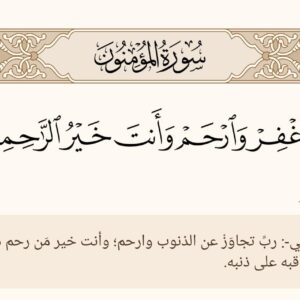 سُورَةُ المُؤْمِنُونَ
غْفِرْ وَٱرْحَمْ وَأَنتَ خَيْرُ ٱلرَّٰحِمِ
ي-: ربِّ تجاوَزْ عن الذنوب وارحم؛ وأنت خير مَن رحم
قبه على ذنبه.